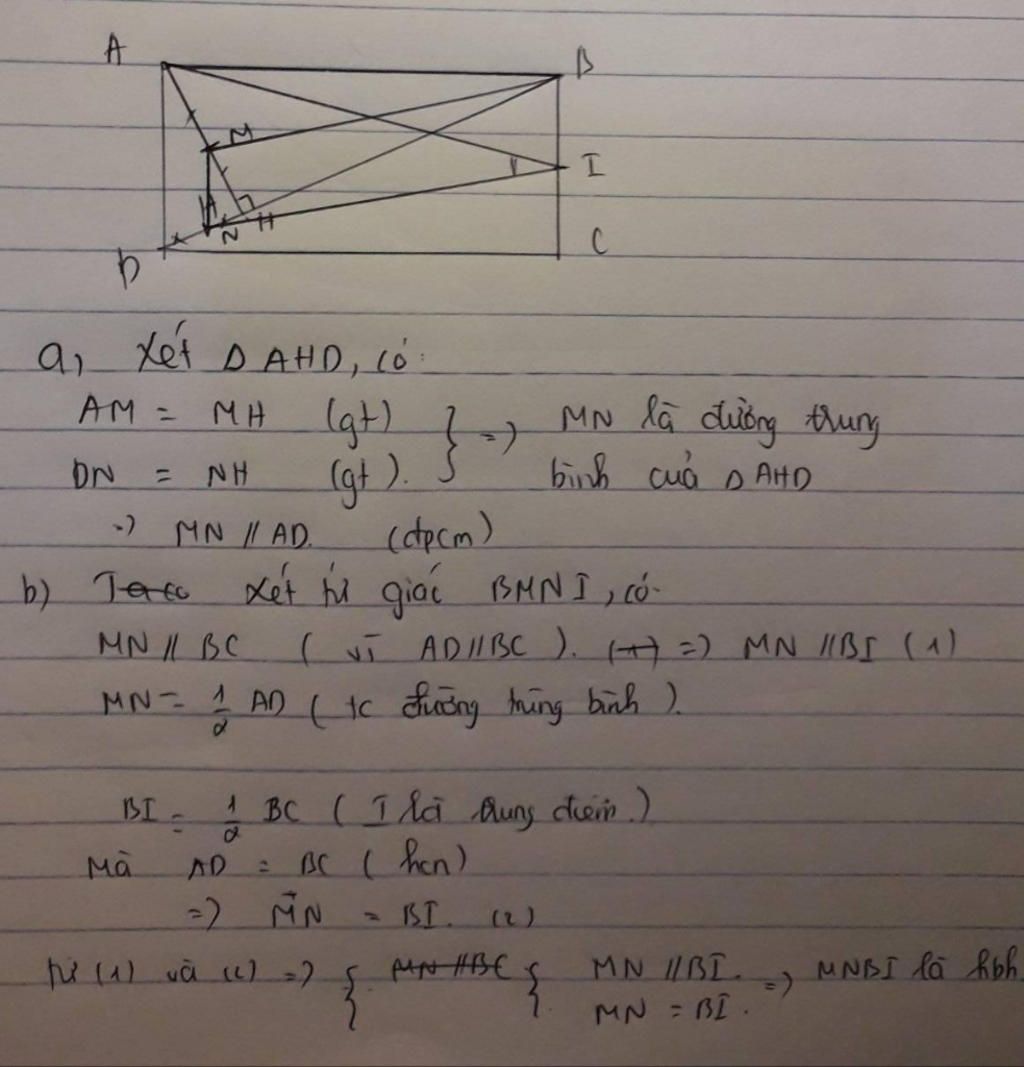 A
B
M
I
H
N
D
C
a, Xét Δ AHD, có:
AM = MH (gt) } => MN là đường trung
DN = NH (gt). bình của Δ AHD
=> MN // AD. (đpcm)
b) Xét tứ giác BMNI, có.
MN // BC ( vì AD // BC ). => MN // BI (1)
MN = 1/2 AD ( tc đường trung bình ).
BI = 1/2 BC ( I là trung điểm.)
Mà AD = BC ( hcn)
=> MN = BI. (2)
từ (1) và (2) => { MN // BC { MN // BI. => MNBI là hbh
MN = BI.